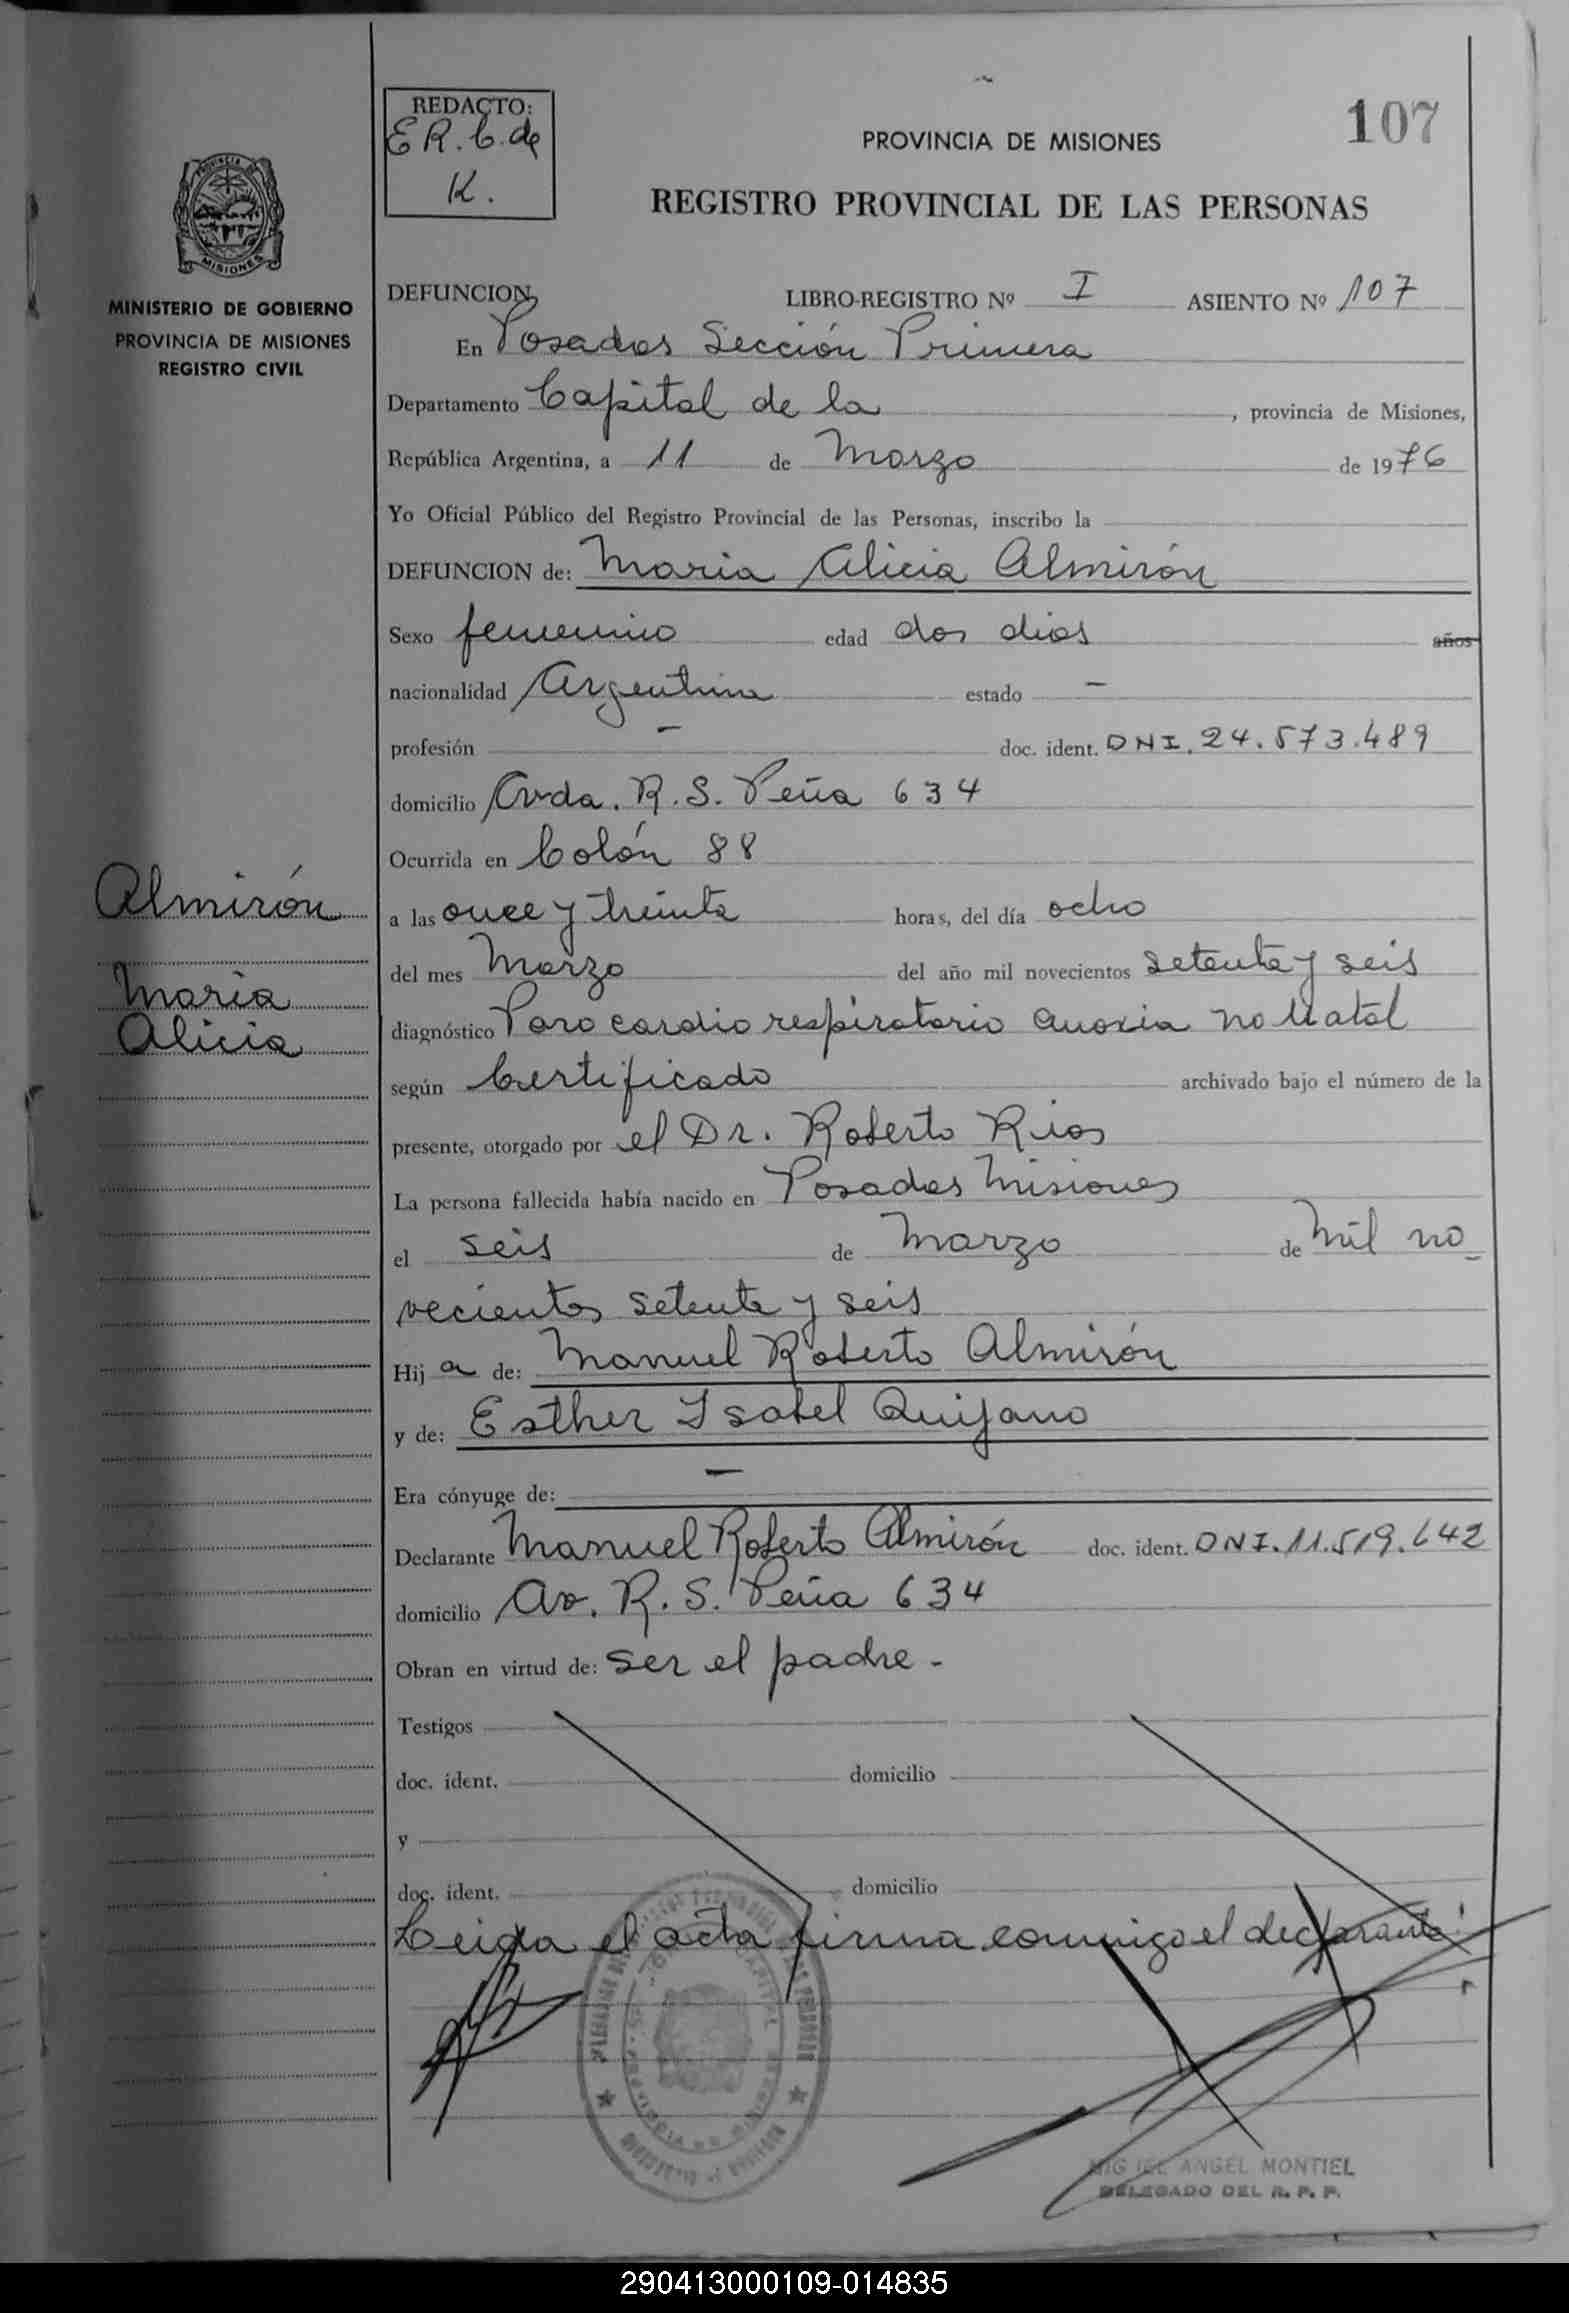 REDACTO:
E R. C. de
K.
107
PROVINCIA DE MISIONES
REGISTRO PROVINCIAL DE LAS PERSONAS
PROVINCIA DE
MISIONES
MINISTERIO DE GOBIERNO
PROVINCIA DE MISIONES
REGISTRO CIVIL
DEFUNCION LIBRO-REGISTRO Nº I ASIENTO Nº 107
En Posadas Sección Primera
Departamento Capital de la , provincia de Misiones,
República Argentina, a 11 de Marzo de 1976
Yo Oficial Público del Registro Provincial de las Personas, inscribo la
DEFUNCION de: Maria Alicia Almirón
Sexo femenino edad dos dias años
nacionalidad Argentina estado -
profesión - doc. ident. DNI. 24.573.489
domicilio Avda. R. S. Peña 634
Ocurrida en Colón 88
Almirón
a las once y treinta horas, del día ocho
del mes Marzo del año mil novecientos setenta y seis
Maria
Alicia
diagnóstico Paro cardio respiratorio anoxia
según Certificado archivado bajo el número de la
presente, otorgado por el Dr. Roberto Rios
La persona fallecida había nacido en Posadas Misiones
el seis de Marzo de Mil no
vecientos setenta y seis
Hija de: Manuel Roberto Almirón
y de: Esther Isabel Quijano
Era cónyuge de: -
Declarante Manuel Roberto Almirón doc. ident. DNI. 11.519.642
domicilio Av. R. S. Peña 634
Obran en virtud de: ser el padre -
Testigos
doc. ident. domicilio
y
doc. ident. domicilio
Leida el acta firma conmigo el declarante
MIGUEL ANGEL MONTIEL
DELEGADO DEL R. P. P.
290413000109-014835